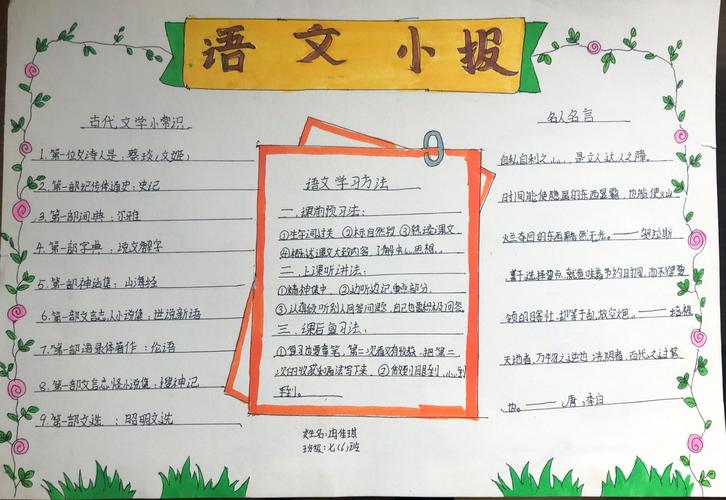 语文小报
古代文学小常识
1.第一位女诗人是：蔡琰(文姬)
2.第一部纪传体通史：史记
3.第一部词典：尔雅
4.第一部字典：说文解字
5.第一部神话集：山海经
6.第一部文言志人小说集：世说新语
7.第一部语录体著作：伦语
8.第一部文言志怪小说集：搜神记
9.第一部文选：昭明文选
语文学习方法
一、课前预习法：
①生字词过关 ②标自然段 ③熟读课文
④概述课文大致内容，了解中心思想。
二、上课听讲法：
①精神集中，②边听边记重点部分，
③认真倾听别人回答问题，自己也要积极回答
三、课后复习法：
①复习也要拿笔，第二次看又有收获，把第二
次的收获和看法写下来，②做到眼到，心到
手到。
姓名：由佳琪
班级：七(6)班
名人名言
自私自利之心，是立人达人之障。
时间能使隐匿的东西显露，也能使灿
烂夺目的东西黯然无光。——贺拉斯
善于选择要点，就意味着节约时间，而不得要
领的瞎忙，却等于乱放空炮。——培根
天地者，万物之逆也；光阴者，百代之过客
也。——唐·李白